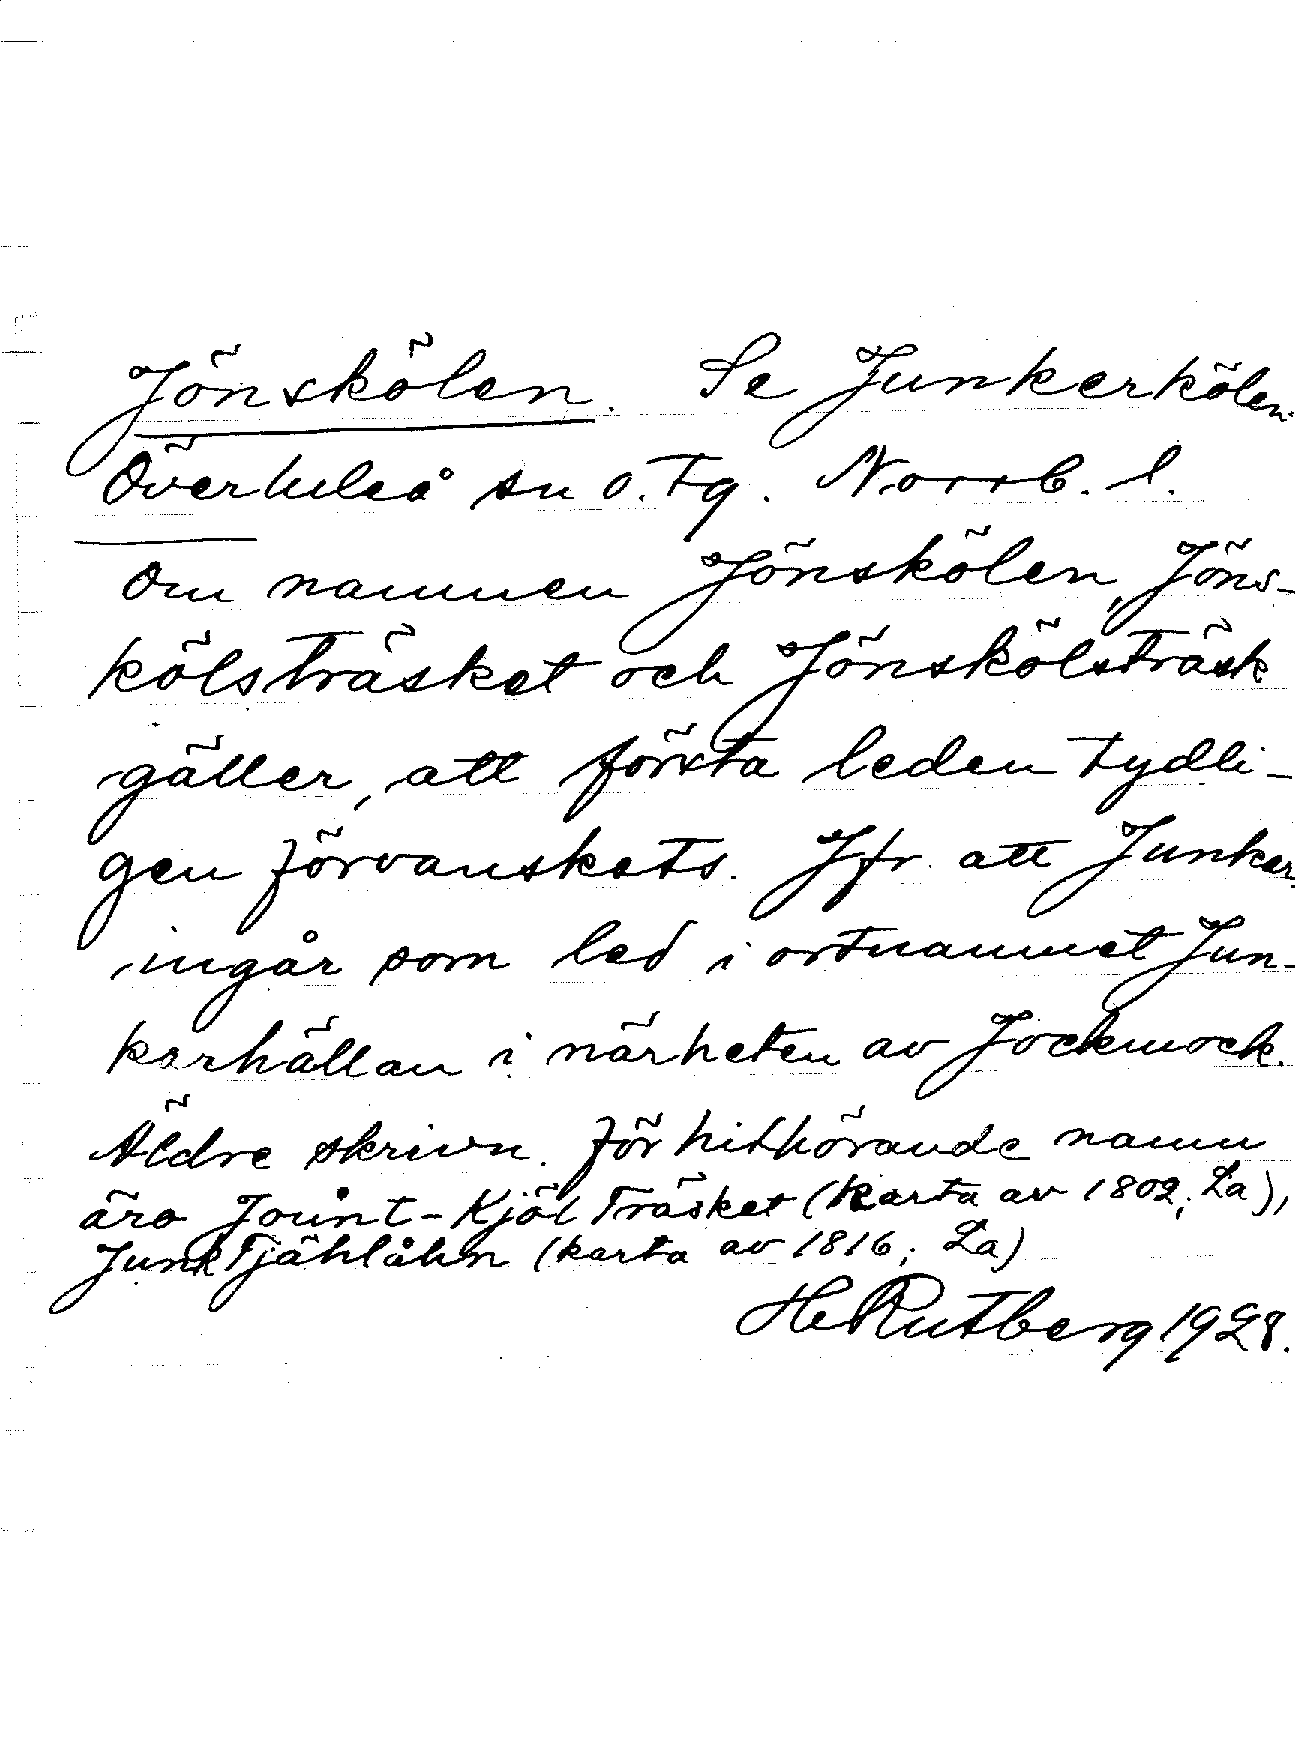 Jönskölen. Se Junkerkölen.
Överluleå sn o. tg. Norrb. l.
Om namnen Jönskölen, Jöns-
kölsträsket och Jönskölsträsk
gäller, att första leden tydli-
gen förvanskats. Jfr. att Junker-
ingår som led i ortnamnet Jun-
kerhällan i närheten av Jockmock.
Äldre skrivn. för hithörande namn
äro Jount-Kjöl Träsket (karta av 1802; La),
JunkTjählåhn (karta av 1816; La)
He Rutberg 1928.